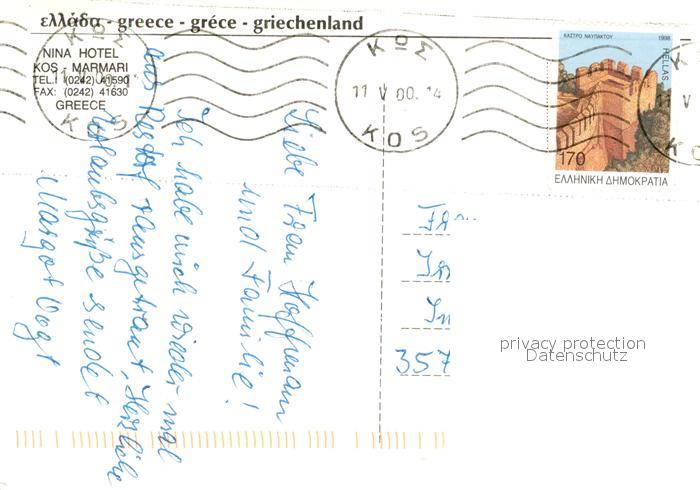 ελλάδα - greece - gréce - griechenland
NINA HOTEL
KOS - MARMARI
TEL.: (0242) 41590
FAX: (0242) 41630
GREECE
ΚΩΣ
KOS
ΚΩΣ
11 V 00. 14
KOS
ΚΑΣΤΡΟ ΝΑΥΠΑΚΤΟΥ 1998
HELLAS
170
ΕΛΛΗΝΙΚΗ ΔΗΜΟΚΡΑΤΙΑ
Liebe Frau Hoffmann
und Familie!
Ich habe mich wieder mal
aus Rosdorf rausgetraut. Herzliche
Urlaubsgrüße sendet
Margot Vogt
Fr
In
357
privacy protection
Datenschutz